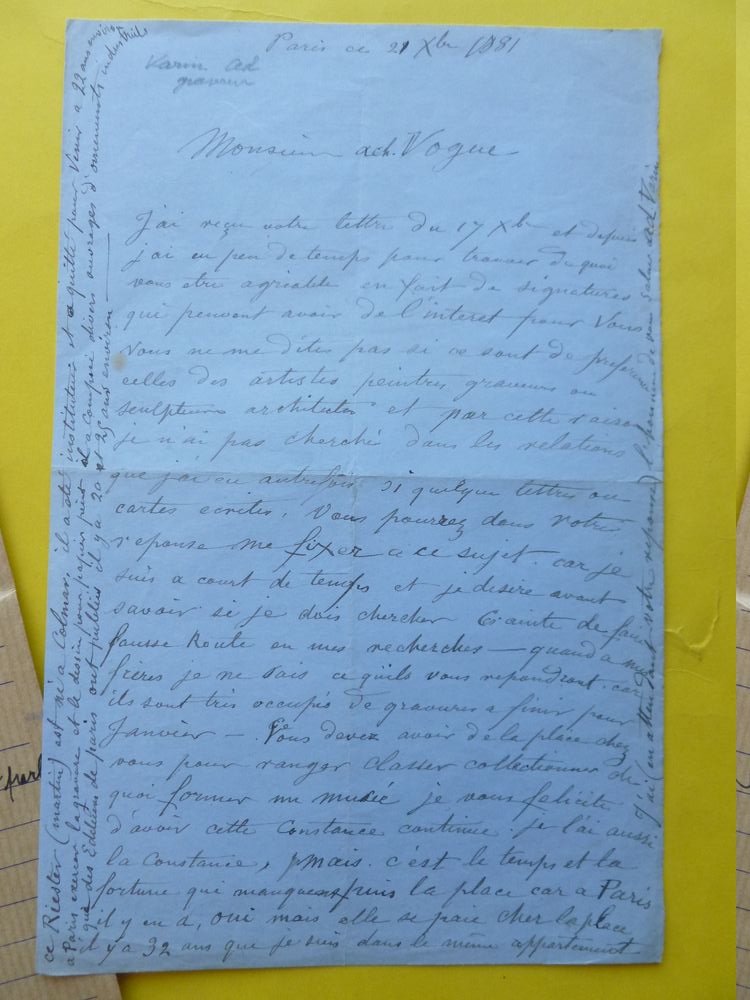 Paris ce 21 Xbre 1881
Varin Ad
graveur
Monsieur ach. Vogue
J'ai reçu votre lettre du 17 Xbre et depuis
j'ai eu peu de temps pour trouver de quoi
vous etre agreable en fait de signatures
qui peuvent avoir de l'interet pour Vous
Vous ne me dites pas si ce sont de preference
celles des artistes peintres graveurs ou
sculpteurs architectes et par cette raison
je n'ai pas cherché dans les relations
que j'ai eu autrefois si quelque lettres ou
cartes ecrites, Vous pourrez dans votre
reponse me fixer a ce sujet. car je
suis a court de temps et je desire avant
savoir si je dois chercher Crainte de faire
fausse Route en mes recherches — quand a mes
frères je ne sais ce qu'ils vous repondront car
ils sont tres occupés de gravures a finir pour
Janvier — Vous devez avoir de la place chez
vous pour ranger classer collectionner de
quoi former un musée je vous felicite
d'avoir cette Constance continue. je l'ai aussi
la Constance, mais c'est le temps et la
fortune qui manquent puis la place car a Paris
il y en a, oui mais elle se paie cher la place
il y a 32 ans que je suis dans le même appartement
J'ai en attendant votre reponse l'honneur de vous saluer Ad Varin
ce Riester (martin) est né a Colmar, il a été instituteur et a quitté pour Venir a 22 ans environ
a Paris exercer la gravure et le dessin pour papier peint il a composé divers ouvrages d'ornements industriels
que des Editeurs de paris ont publiés il y a 20 et 25 ans environ —